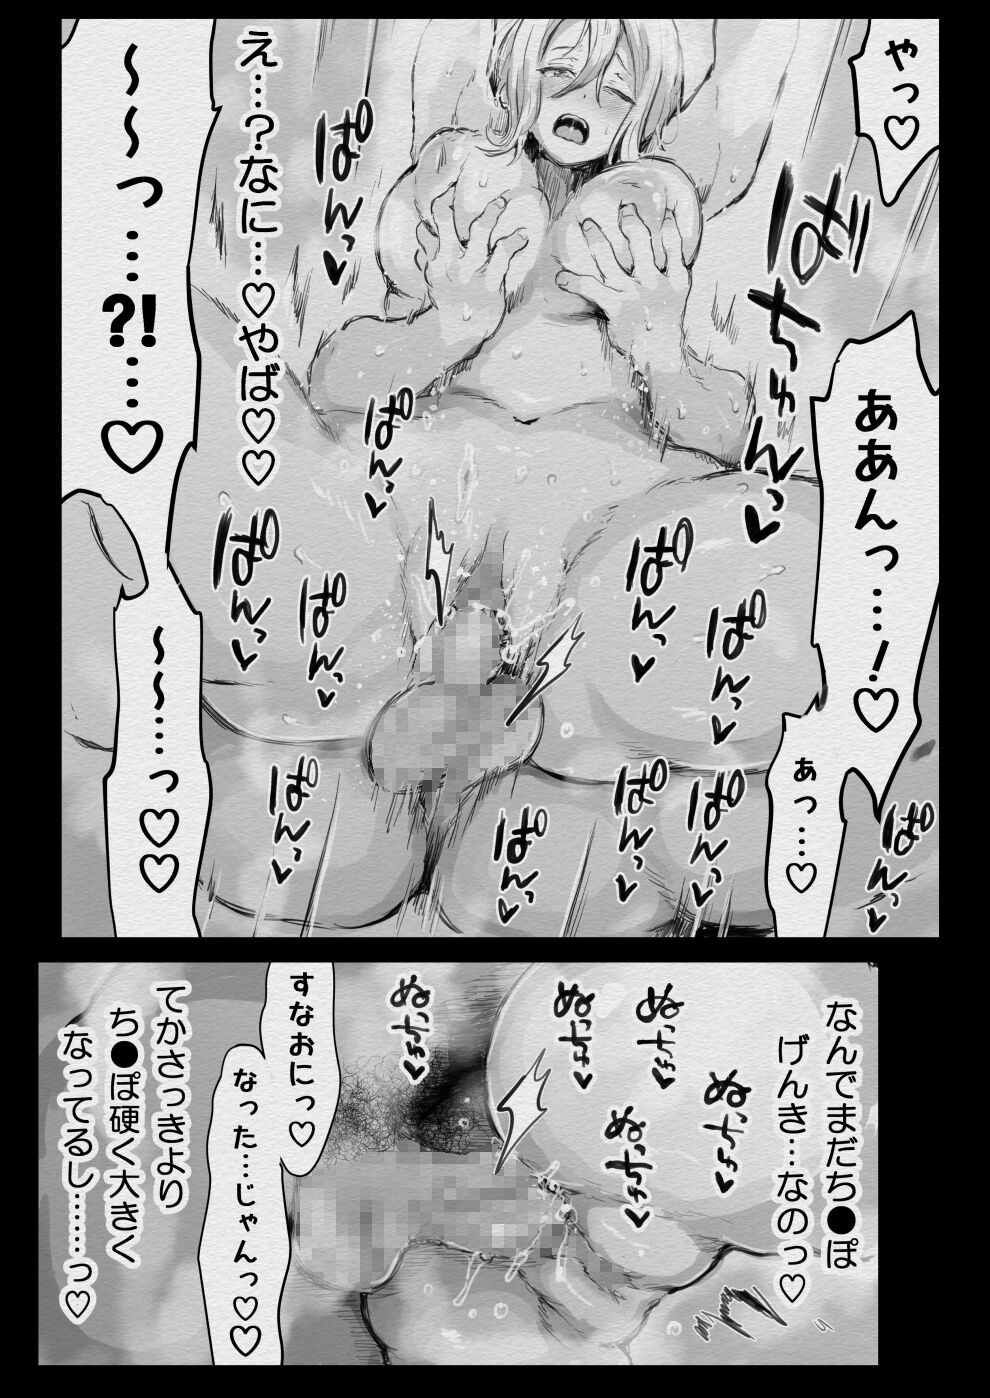 やっ♡
ぱちゅんっ♥
ああんっ……！♡
あっ…♡
ぱんっ♥
え…？なに…♡やば♡♡
～～っ……?!……♡
ぱんっ♥
ぱんっ♥
ぱんっ♥
ぱんっ♥
ぱんっ♥
～～……っ♡♡
ぱんっ♥
ぱんっ♥
ぱんっ♥
ぱんっ♥
ぱんっ♥
なんでまだち●ぽ
げんき…なのっ♡
ぬちっ♥
ぬちっ♥
ぬちっ♥
ぬちっ♥
ぬちっ♥
すなおにっ♡
なった…じゃんっ♡♡
てかさっきより
ち●ぽ硬く大きく
なってるし……っ♡